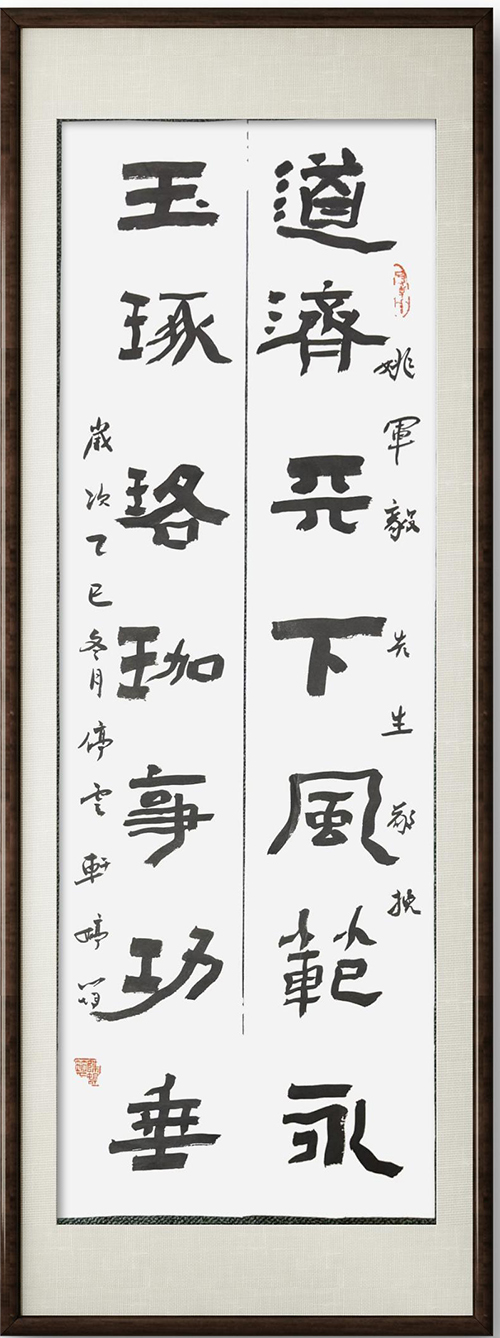 姚軍毅先生敬挽
道濟天下風範永
玉琢珞珈事功垂
歲次乙巳冬月停雲軒婷